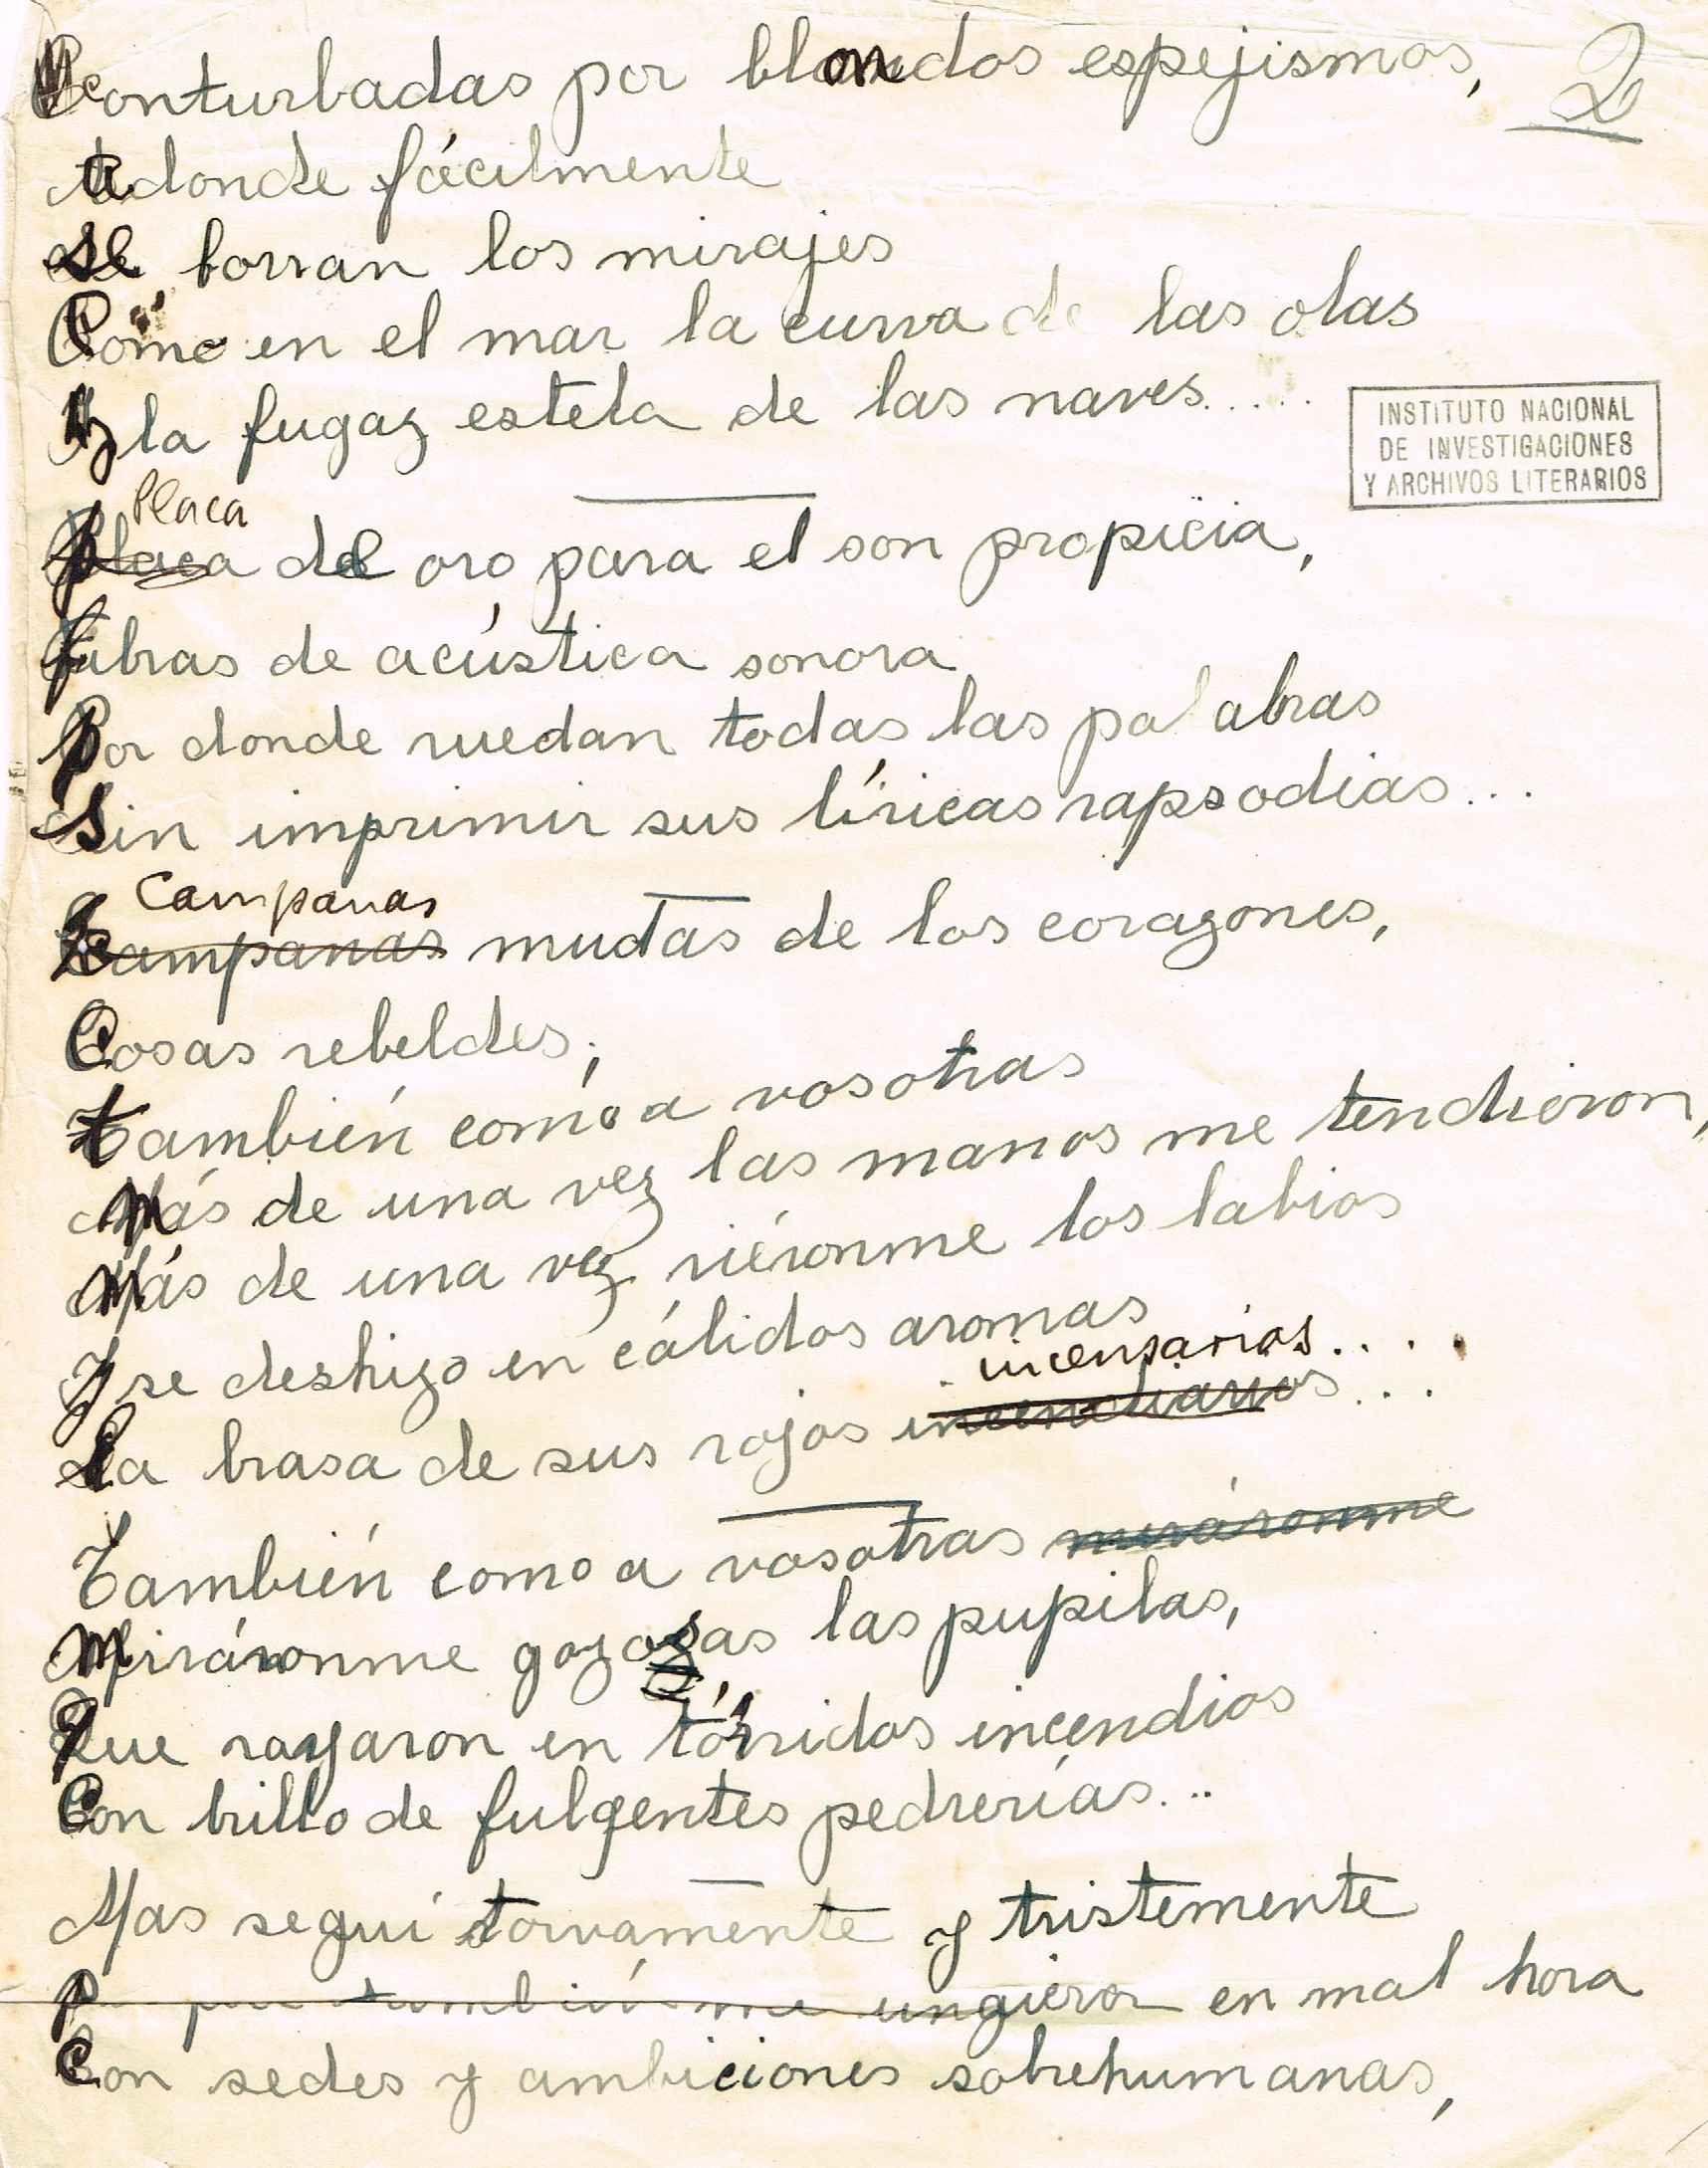 conturbadas por blondos espejismos,
2
adonde fácilmente
se borran los mirajes
Como en el mar la curva de las olas
y la fugaz estela de las naves.....
INSTITUTO NACIONAL
DE INVESTIGACIONES
Y ARCHIVOS LITERARIOS
Placa
placa de oro para el son propicia,
fibras de acústica sonora
por donde ruedan todas las palabras
sin imprimir sus líricas rapsodias...
Campanas
campanas mudas de los corazones,
Cosas rebeldes;
también como a vosotras
más de una vez las manos me tendieron,
más de una vez riéronme los labios
y se deshizo en cálidos aromas
incensarios....
la brasa de sus rojos incendiarios...
También como a vosotras miráronme
miráronme gozosas las pupilas,
que rayaron en tórridos incendios
con brillo de fulgentes pedrerías...
Mas seguí torvamente y tristemente
también me ungieron en mal hora
con sedes y ambiciones sobrehumanas,